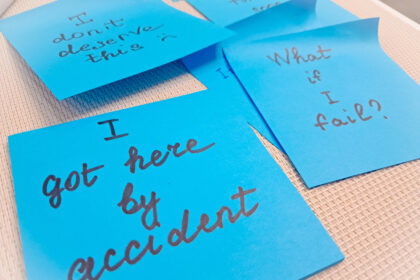 I
don't
deserve
this :(
What
if
I
fail?
I
got here
by
accident